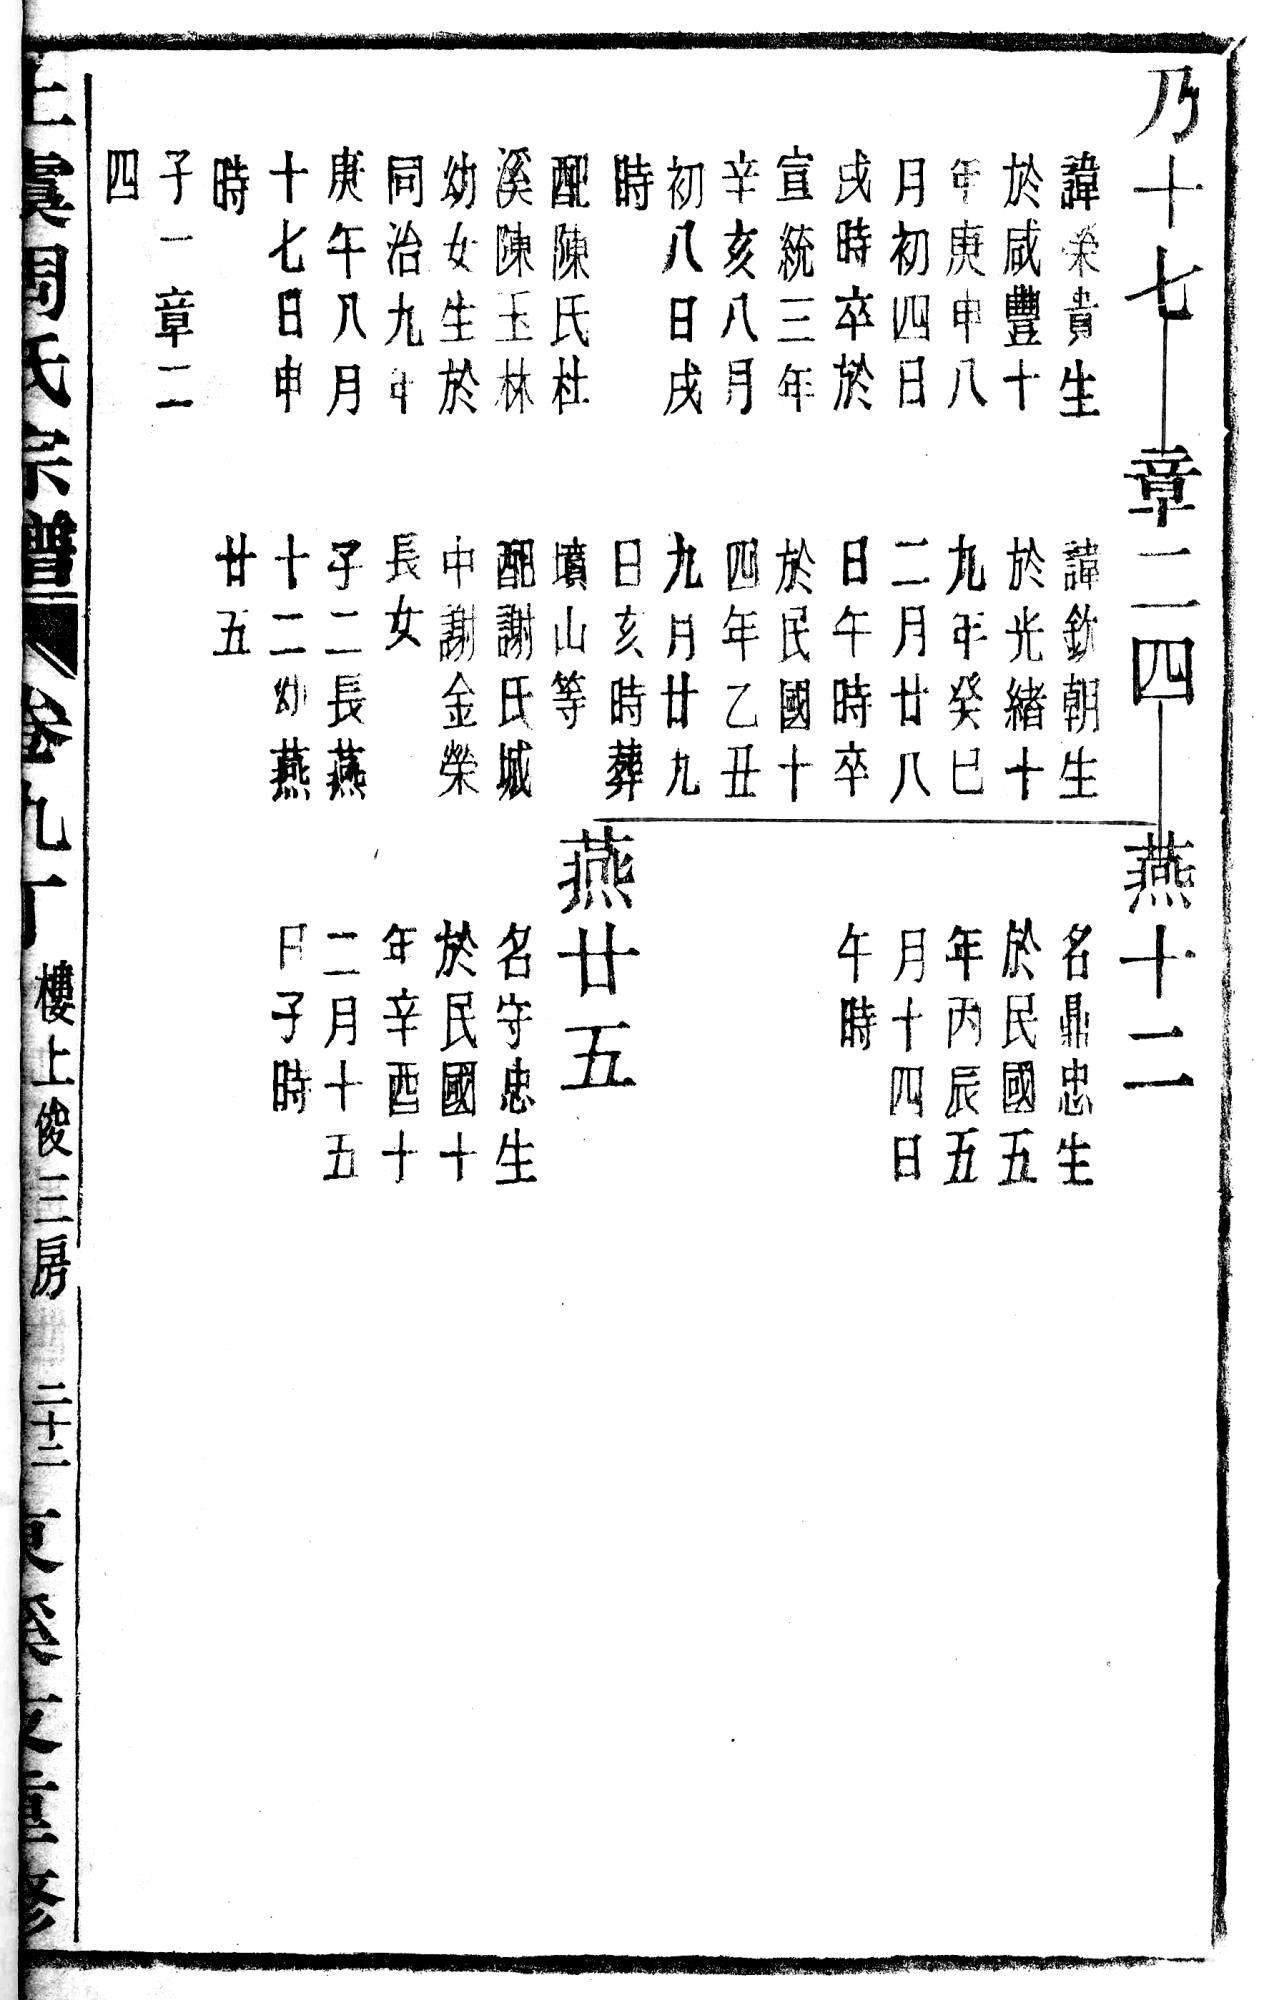 乃十七
諱榮貴生
於咸豐十
年庚申八
月初四日
戌時卒於
宣統三年
辛亥八月
初八日戌
時
配陳氏杜
溪陳玉林
幼女生於
同治九年
庚午八月
十七日申
時
子一章二
四
章二四
諱欽朝生
於光緒十
九年癸巳
二月廿八
日午時卒
於民國十
四年乙丑
九月廿九
日亥時葬
墳山等
配謝氏城
中謝金榮
長女
子二長燕
十二幼燕
廿五
燕十二
名鼎忠生
於民國五
年丙辰五
月十四日
午時
燕廿五
名守忠生
於民國十
年辛酉十
二月十五
日子時
上虞周氏宗譜 卷九丁 樓上俊三房 二十二